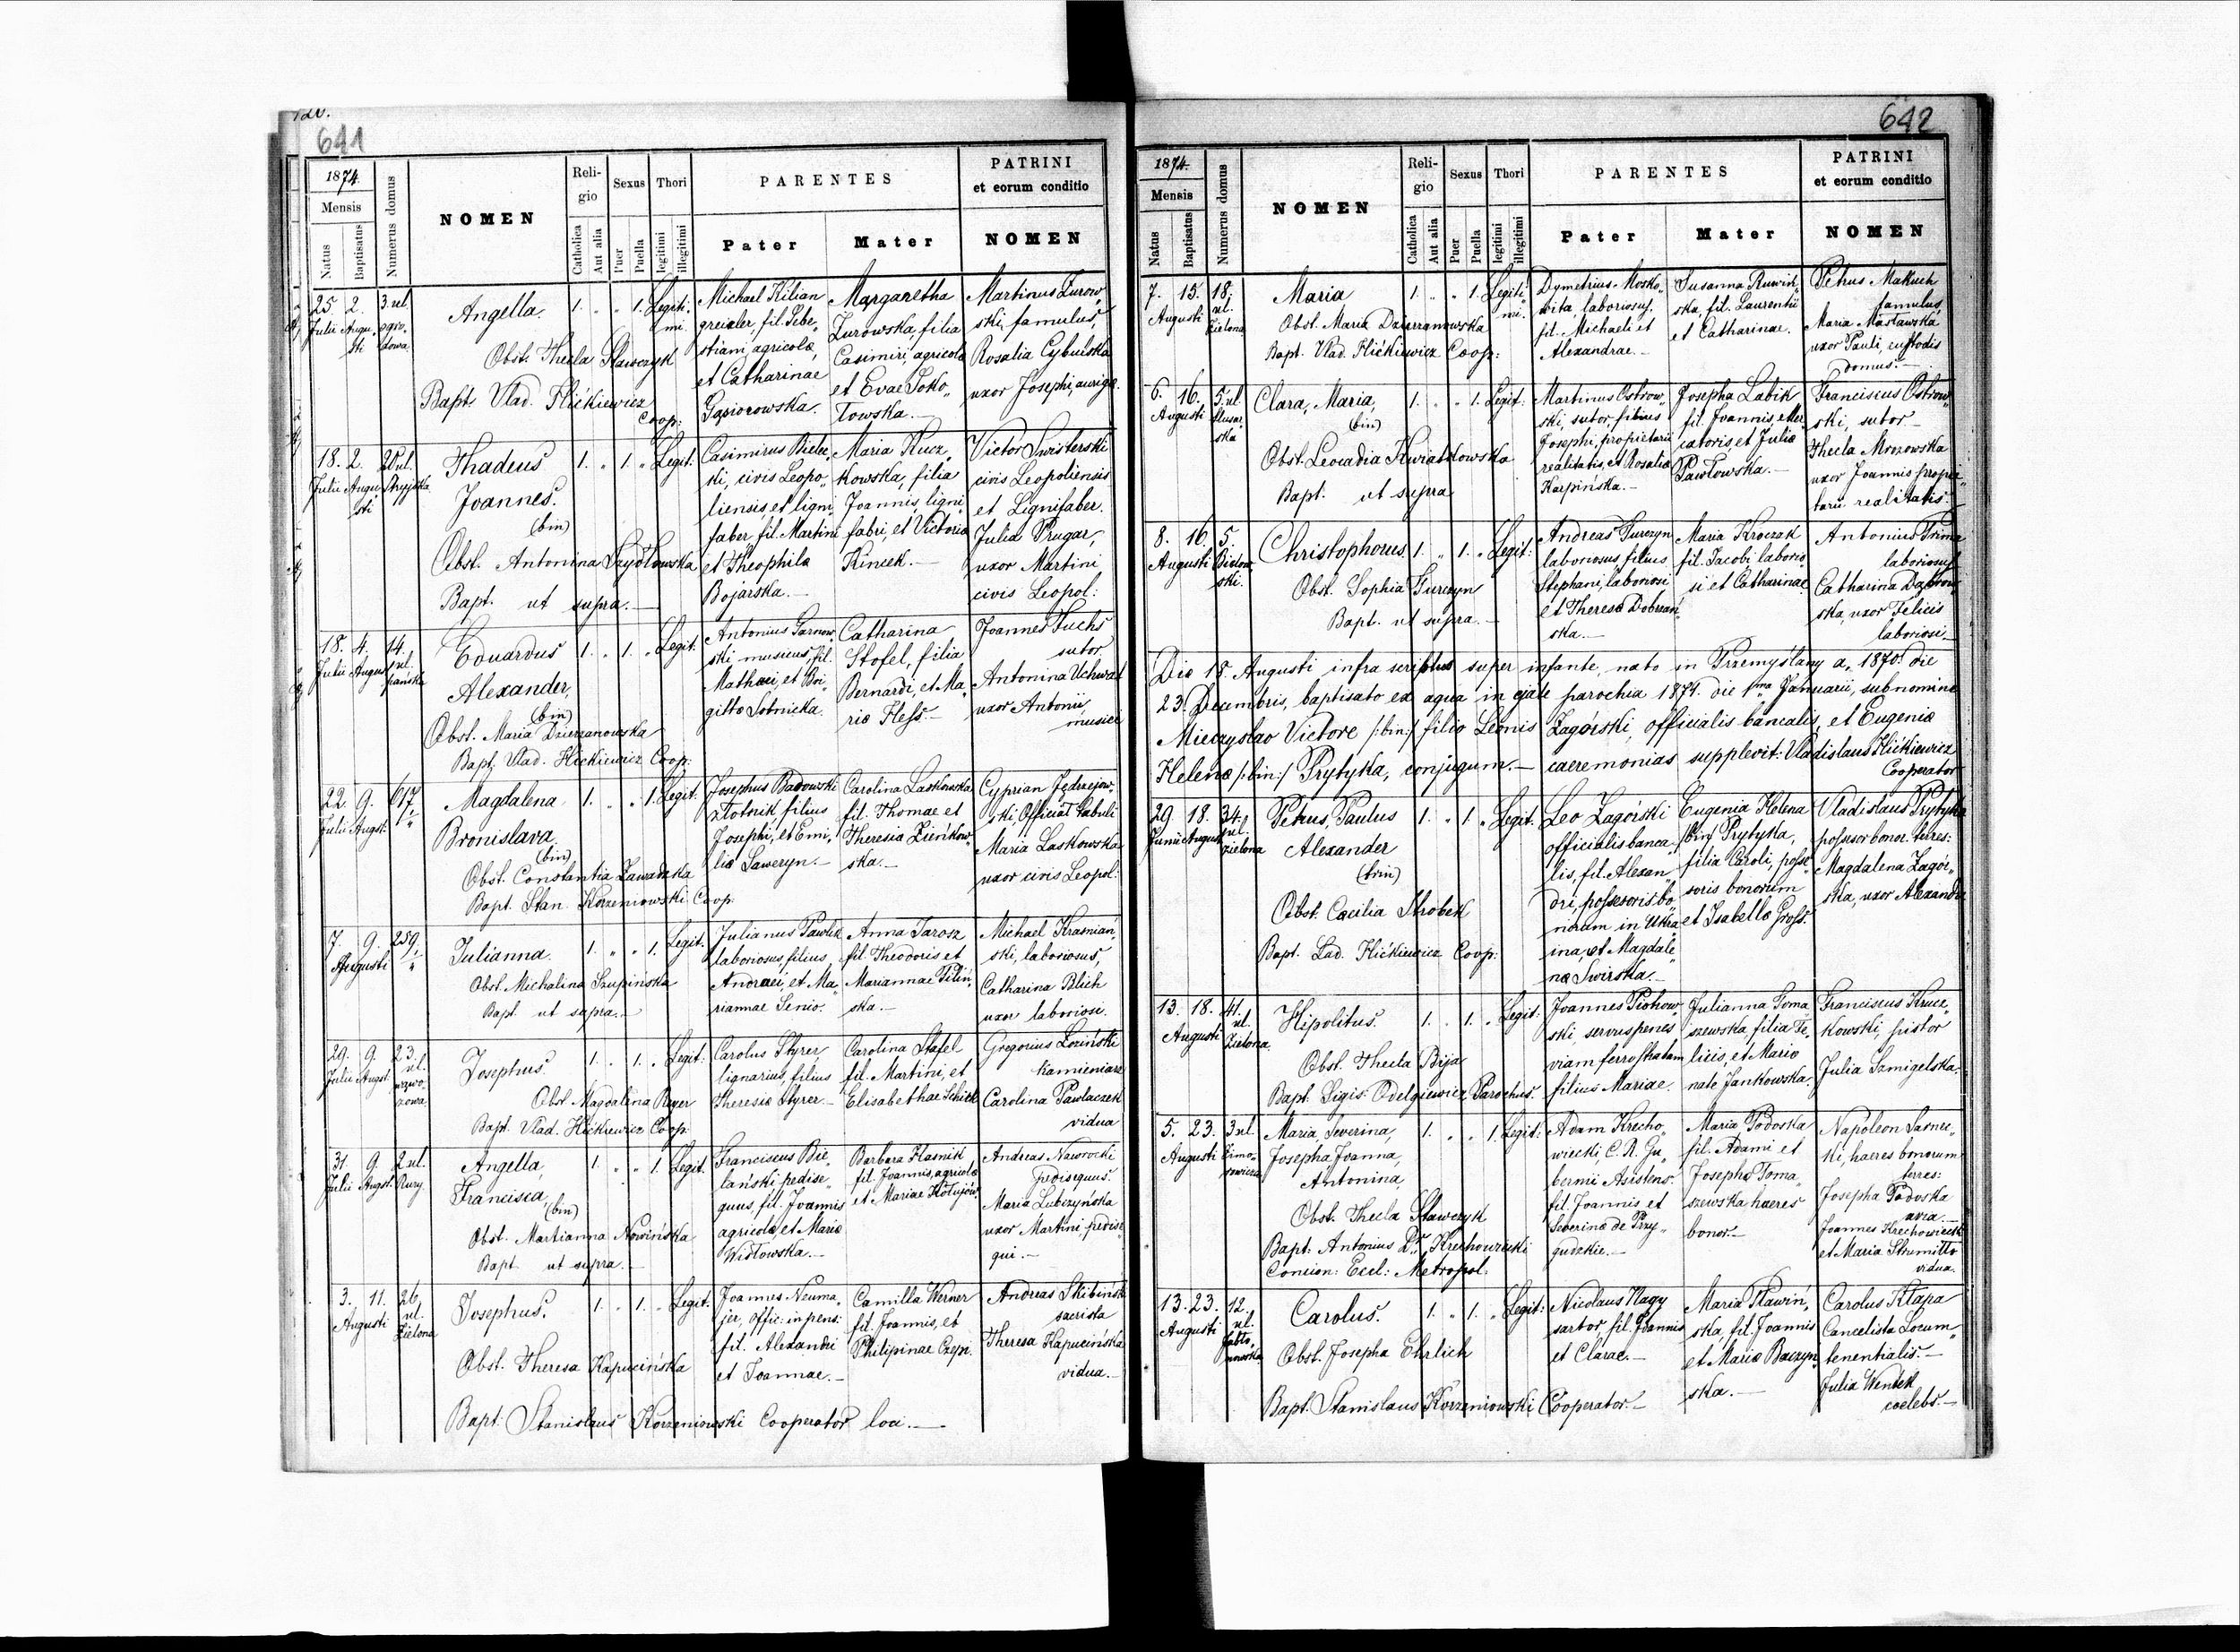 641
1874.
Mensis
Natus
Baptisatus
Numerus domus
NOMEN
Reli-
gio
Catholica
Aut alia
Sexus
Puer
Puella
Thori
legitimi
illegitimi
PARENTES
Pater
Mater
PATRINI
et eorum conditio
NOMEN
25. 2. 3 ul.
Julii Augu-
sti
Angella.
1. „ „ 1. Legiti-
mi.
Obst. Thecla Sławczyk
Bapt. Vlad. Hićkiewicz
Coop:
Michael Kilian
greisler, fil. Seba-
stiani, agricolæ,
et Catharinae
Gąsiorowska.
Margaretha
Żurowska, filia
Casimiri, agricolæ
et Evae Soko-
łowska.—
Martinus Żurow-
ski, famulus,
Rosalia Cybulska
uxor Josephi, aurigæ.
18. 2. ul.
Julii Augu- Stryjska
sti
Thadeus
Joannes.
(bin)
1. „ 1. „ Legit.
Obst. Antonina Szydłowska
Bapt. ut supra.—
Casimirus Bielec-
ki, civis Leopo-
liensis et ligni-
faber, fil. Martini
et Theophilæ
Bojarska.—
Maria Kucz-
kowska, filia
Joannis, ligni-
fabri, et Victoriæ
Kincek.—
Victor Swisterski
civis Leopoliensis
et Lignifaber.
Julia Prugar,
uxor Martini
civis Leopol:
18. 4. 14.
Julii August ul.
pańska
Eduardus
Alexander,
(bin)
1. „ 1. „ Legit.
Obst. Maria Dzierzanowska
Bapt. Vlad. Hićkiewicz Coop:
Antonius Tarnow-
ski musicus, fil.
Mathæi, et Bri-
gittæ Sotnicka.
Catharina
Stofel, filia
Bernardi, et Ma-
riæ Fleſs.—
Joannes Fuchs
sutor
Antonina Uchwat
uxor Antonii,
musici
22. 9. 617
Julii Augst.
Magdalena
Bronislava.
(bin)
1. „ „ 1. Legit.
Obst. Constantia Zawadzka
Bapt. Stan. Korzeniowski Coop.
Josephus Badowski
złotnik, filius
Josephi, et Emi-
liæ Saweryn.—
Carolina Laskowska
fil. Thomae et
Theresiæ Zieńkow-
ska.—
Cyprian Jędrzejow-
ski, Official tabuli
Maria Laskowska
uxor civis Leopol:
7. 9. 259.
Augusti
Julianna.
1. „ „ 1. Legit.
Obst. Michalina Szupińska
Bapt. ut supra.—
Julianus Pawlik
laboriosus, filius
Andreæi, et Ma-
riannae Senio.
Anna Jarosz
fil. Theodoris et
Mariannae Pilin-
ska.—
Michael Krasnian-
ski, laboriosus,
Catharina Blich
uxor laboriosi.
29. 9. 23.
Julii Augst. ul.
Josephus.
1. „ 1. „ Legit:
Obst. Magdalina Rayer
Bapt. Vlad. Hićkiewicz Coop:
Carolus Styrer,
lignarius, filius
Theresiæ Styrer.—
Carolina Stafel
fil. Martini, et
Elisabethae Schick
Gregorius Łoziński
kamieniarz
Carolina Pawlaczek
vidua
31. 9. 2 ul.
Julii Augst. Rury
Angella,
Francisca,
(bin)
1. „ „ 1. Legit.
Obst. Martianna Nowińska
Bapt. ut supra.—
Franciscus Bie-
lański pedise-
quus, fil. Joannis
agricolæ, et Mariæ
Widłowska.—
Barbara Klasnik
fil. Joannis, agricolæ
et Mariae Kołujów.
Andreas Nawrocki
pedisequus.
Maria Lubczyńska
uxor Martini, pedise-
qui.—
3. 11. 26.
Augusti ul.
Zielona
Josephus.
1. „ 1. „ Legit:
Obst. Theresa Kapucińska
Bapt: Stanislaus Korzeniowski Cooperator loci.—
Joannes Neuma-
jer, offic: in pens:
fil. Alexandri
et Joannae.—
Camilla Werner
fil. Joannis, et
Philipinae Czepi.
Andreas Skibiński
sacrista
Theresa Kapucińska
vidua.—
642
1874.
Mensis
Natus
Baptisatus
Numerus domus
NOMEN
Reli-
gio
Catholica
Aut alia
Sexus
Puer
Puella
Thori
legitimi
illegitimi
PARENTES
Pater
Mater
PATRINI
et eorum conditio
NOMEN
7. 15. 18.
Augusti ul.
Zielona
Maria
1. „ „ 1. Legiti-
mi.
Obst. Maria Dzierzanowska
Bapt. Vlad. Hićkiewicz Coop:
Dymetrius Mosko-
wita, laboriosus,
fil. Michaeli et
Alexandrae.—
Susanna Ruwin-
ska, fil. Laurentii
et Catharinae.
Petrus Makuch
famulus,
Maria Masławska
uxor Pauli, custodis
domus.—
6. 16. 5. ul
Augusti
Clara, Maria,
(bin)
1. „ „ 1. Legit:
Obst. Leocadia Kwiatkowska
Bapt. ut supra
Martinus Ostrow-
ski, sutor, filius
Josephi, proprietarii
realitatis, et Rosaliæ
Karpińska.—
Josepha Labik
fil. Joannis, Mer-
catoris, et Juliæ
Pawłowska.—
Franciscus Ostrow-
ski, sutor.—
Thecla Mrozowska
uxor Joannis proprie-
tarii realitatis.—
8. 16. 5.
Augusti
Christophorus.
1. „ 1. „ Legit:
Obst. Sophia Turczyn
Bapt. ut supra.—
Andreas Turczyn
laboriosus, filius
Stephani, laboriosi
et Theresæ Dobrzań-
ska.—
Maria Kroczak
fil. Jacobi laborio-
si et Catharinae
Antonius Prima
laboriosus
Catharina Dąbrow-
ska, uxor Felicis
laboriosi—
Die 18. Augusti infra scriptus super infante, nato in Przemyślany a. 1870. die
23. Decembris, baptisato ex aqua in ejate parochia 1871. die 1ma Januarii, sub nomine
Mieczyslao Victore /:bin:/ filio Leonis Zagórski, officialis bancalis, et Eugeniæ
Helenæ /:bin:/ Prytyka, conjugum.— caeremonias supplevit: Vladislaus Hićkiewicz
Cooperator
29. 18. 34.
Junii August ul.
zielona
Petrus, Paulus
Alexander
(trin)
1. „ 1. „ Legit.
Obst. Cæcilia Strobek
Bapt. Lad. Hićkiewicz Coop:
Leo Zagórski
officialis banca-
lis, fil. Alexan-
dri, poſsesoris bo-
norum in Ukra-
ina, et Magdale-
næ Swirska.—
Eugenia Helena
(bin) Prytyka,
filia Caroli, poſse-
soris bonorum
et Isabellæ Groſs.
Vladislaus Prytyka
poſsesor bonor. terres:
Magdalena Zagór-
ska, uxor Alexandri
13. 18. 41.
Augusti ul.
Zielona.
Hipolitus.
1. „ 1. „ Legit:
Obst. Thecla Bija
Bapt. Sigis. Odelgiewicz Parochus.
Joannes Piotrow-
ski, servus penes
viam ferrostratam
filius Mariae.
Julianna Toma-
szewska, filia Fe-
licis, et Mario-
nate Jankowska.
Franciscus Krucz-
kowski, pistor
Julia Szmigelska.
5. 23. 3 ul.
Augusti Zimo-
rowicza
Maria, Severina,
Josepha Joanna,
Antonina,
1. „ „ 1. Legit:
Obst. Thecla Sławczyk
Bapt: Antonius Dr. Krechowiecki
Concion: Eccl: Metropol:
Adam Krecho-
wiecki C. R. Gu-
bernii Asistens.
fil. Joannis et
Severinæ de Przy-
gudzkie.—
Maria Podoska
fil. Adami et
Josephæ Toma-
szewska haeres
bonor.—
Napoleon Sarnec-
ki, haeres bonorum
terres:
Josepha Podoska
avia.—
Joannes Krechowiecki
et Maria Strumiłło
vidua.
13. 23. 12.
Augusti ul.
Carolus.
1. „ 1. „ Legit:
Obst. Josepha Ehrlich
Bapt. Stanislaus Korzeniowski Cooperator.—
Nicolaus Nagy
sartor, fil. Joannis
et Clarae.—
Maria Pławiń-
ska, fil. Joannis
et Mariæ Baczyn-
ska.—
Carolus Kłapa
Cancelista Locum-
tenentialis.—
Julia Wentek
coelebs.—